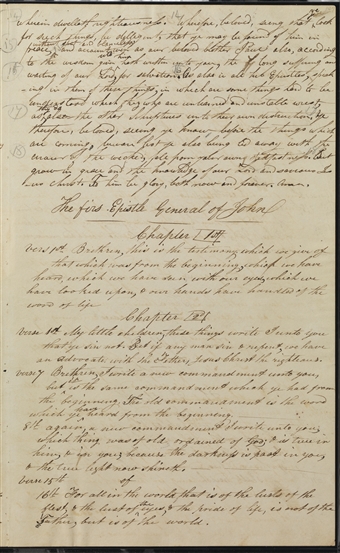 wherein dwelleth righteousness. 14 Wherefore, beloved, seeing that ye look
for such things, be diligent, that ye may be found of him in
peace, without spot and blameless
and account even as our beloved brother Paul also, according
to the wisdom given unto him hath written unto you, the long suffering and
waiting of our Lord, for salvation. 16 As also in all his Epistles, speak-
ing in them of these things, in which are some things hard to be
understood which they who are unlearned and unstable wrest,
as they do also the other scriptures unto their own destruction. 17 Ye
therefore, beloved, seeing ye know before the things which
are coming, beware lest ye also being led away with the
error of the wicked, fall from your own stedfastness. 18 But
grow in grace and the knowledge of our Lord and saviour Je-
sus christ. To him be glory, both now and forever. Amen.
The firs Epistle General of John
Chapter 1st
vers 1st Brethren, this is the testimony which we give of
that which was from the beginning, which we have
heard, which we have seen with our eyes, which we
have looked upon, & our hands have handled of the
word of life
Chapter 2d
verse 1st My little children, these things write I unto you
that ye sin not. But if any man sin & repent, we have
an advocate with the Father, Jesus Christ the righteous.
verse 7 Brethren, I write a new commandment unto you,
but it is the same commandment which ye had from
the beginning. The old commandment is the word
which ye have heard from the beginning.
8th again, a new commandment I write unto you,
which thing was of old ordained of God, & is true in
him, & in you; because the darkness is past in you,
& the true light now shineth.
verse 15th of
16th For all in the world, that is of the lusts of the
flesh, & the lust of the eyes, & the pride of life, is not of the
Father, but is of the world.